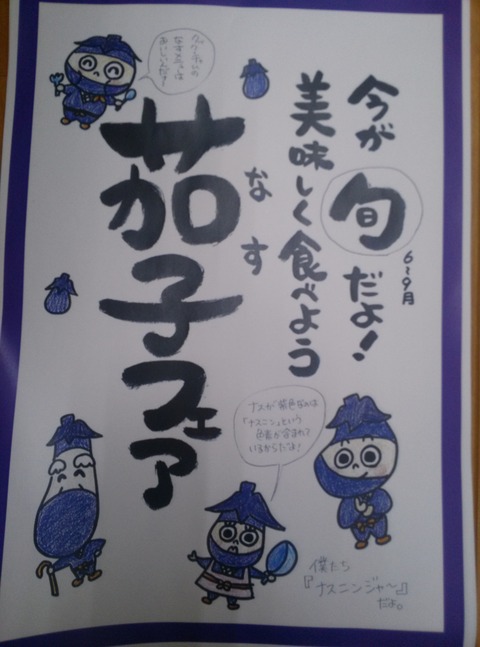 今が旬だよ!
6~9月
美味しく食べよう
なす
茄子フェア
なすフェアは
おいしいんだよ!
ナスが紫色なのは
「ナスニン」という
色素が含まれて
いるからだよ!
僕たち
『ナスニンジャ〜』
だよ。